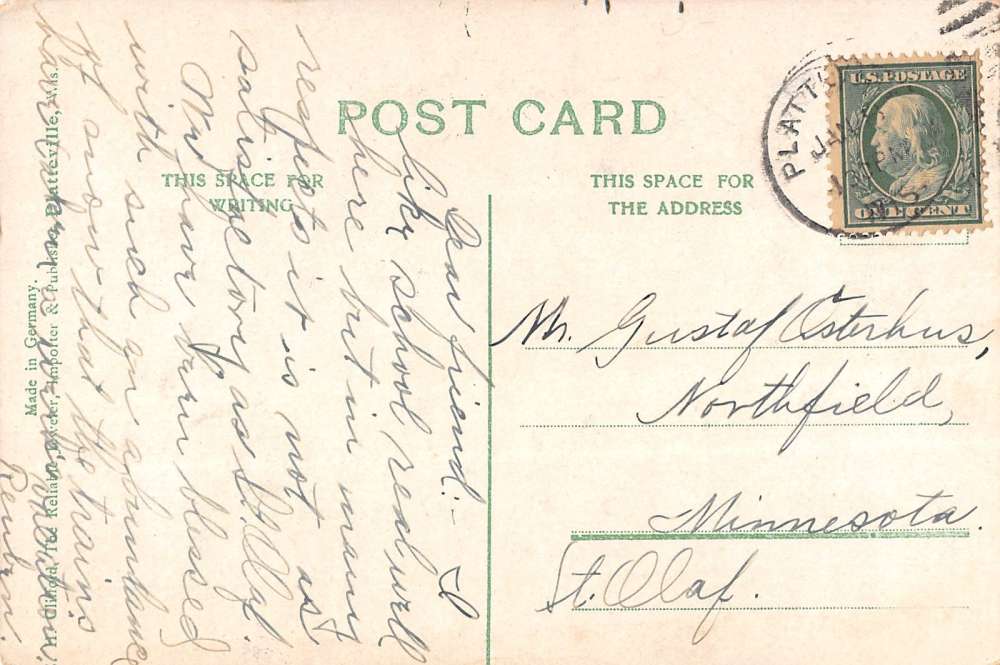 POST CARD
THIS SPACE FOR
WRITING
THIS SPACE FOR
THE ADDRESS
PLATT
JAN
U.S. POSTAGE
ONE CENT
Dear friend:- I
like school real well
here but in many
respects it is not as
satisfactory as St. Olaf.
We have been blessed
with such an abundance
of snow that the trains
Made in Germany.
Clifford, The Reliable Jeweler, Importer & Publisher, Platteville, Wis.
Mr. Gustaf Osterhus,
Northfield,
Minnesota.
St. Olaf.